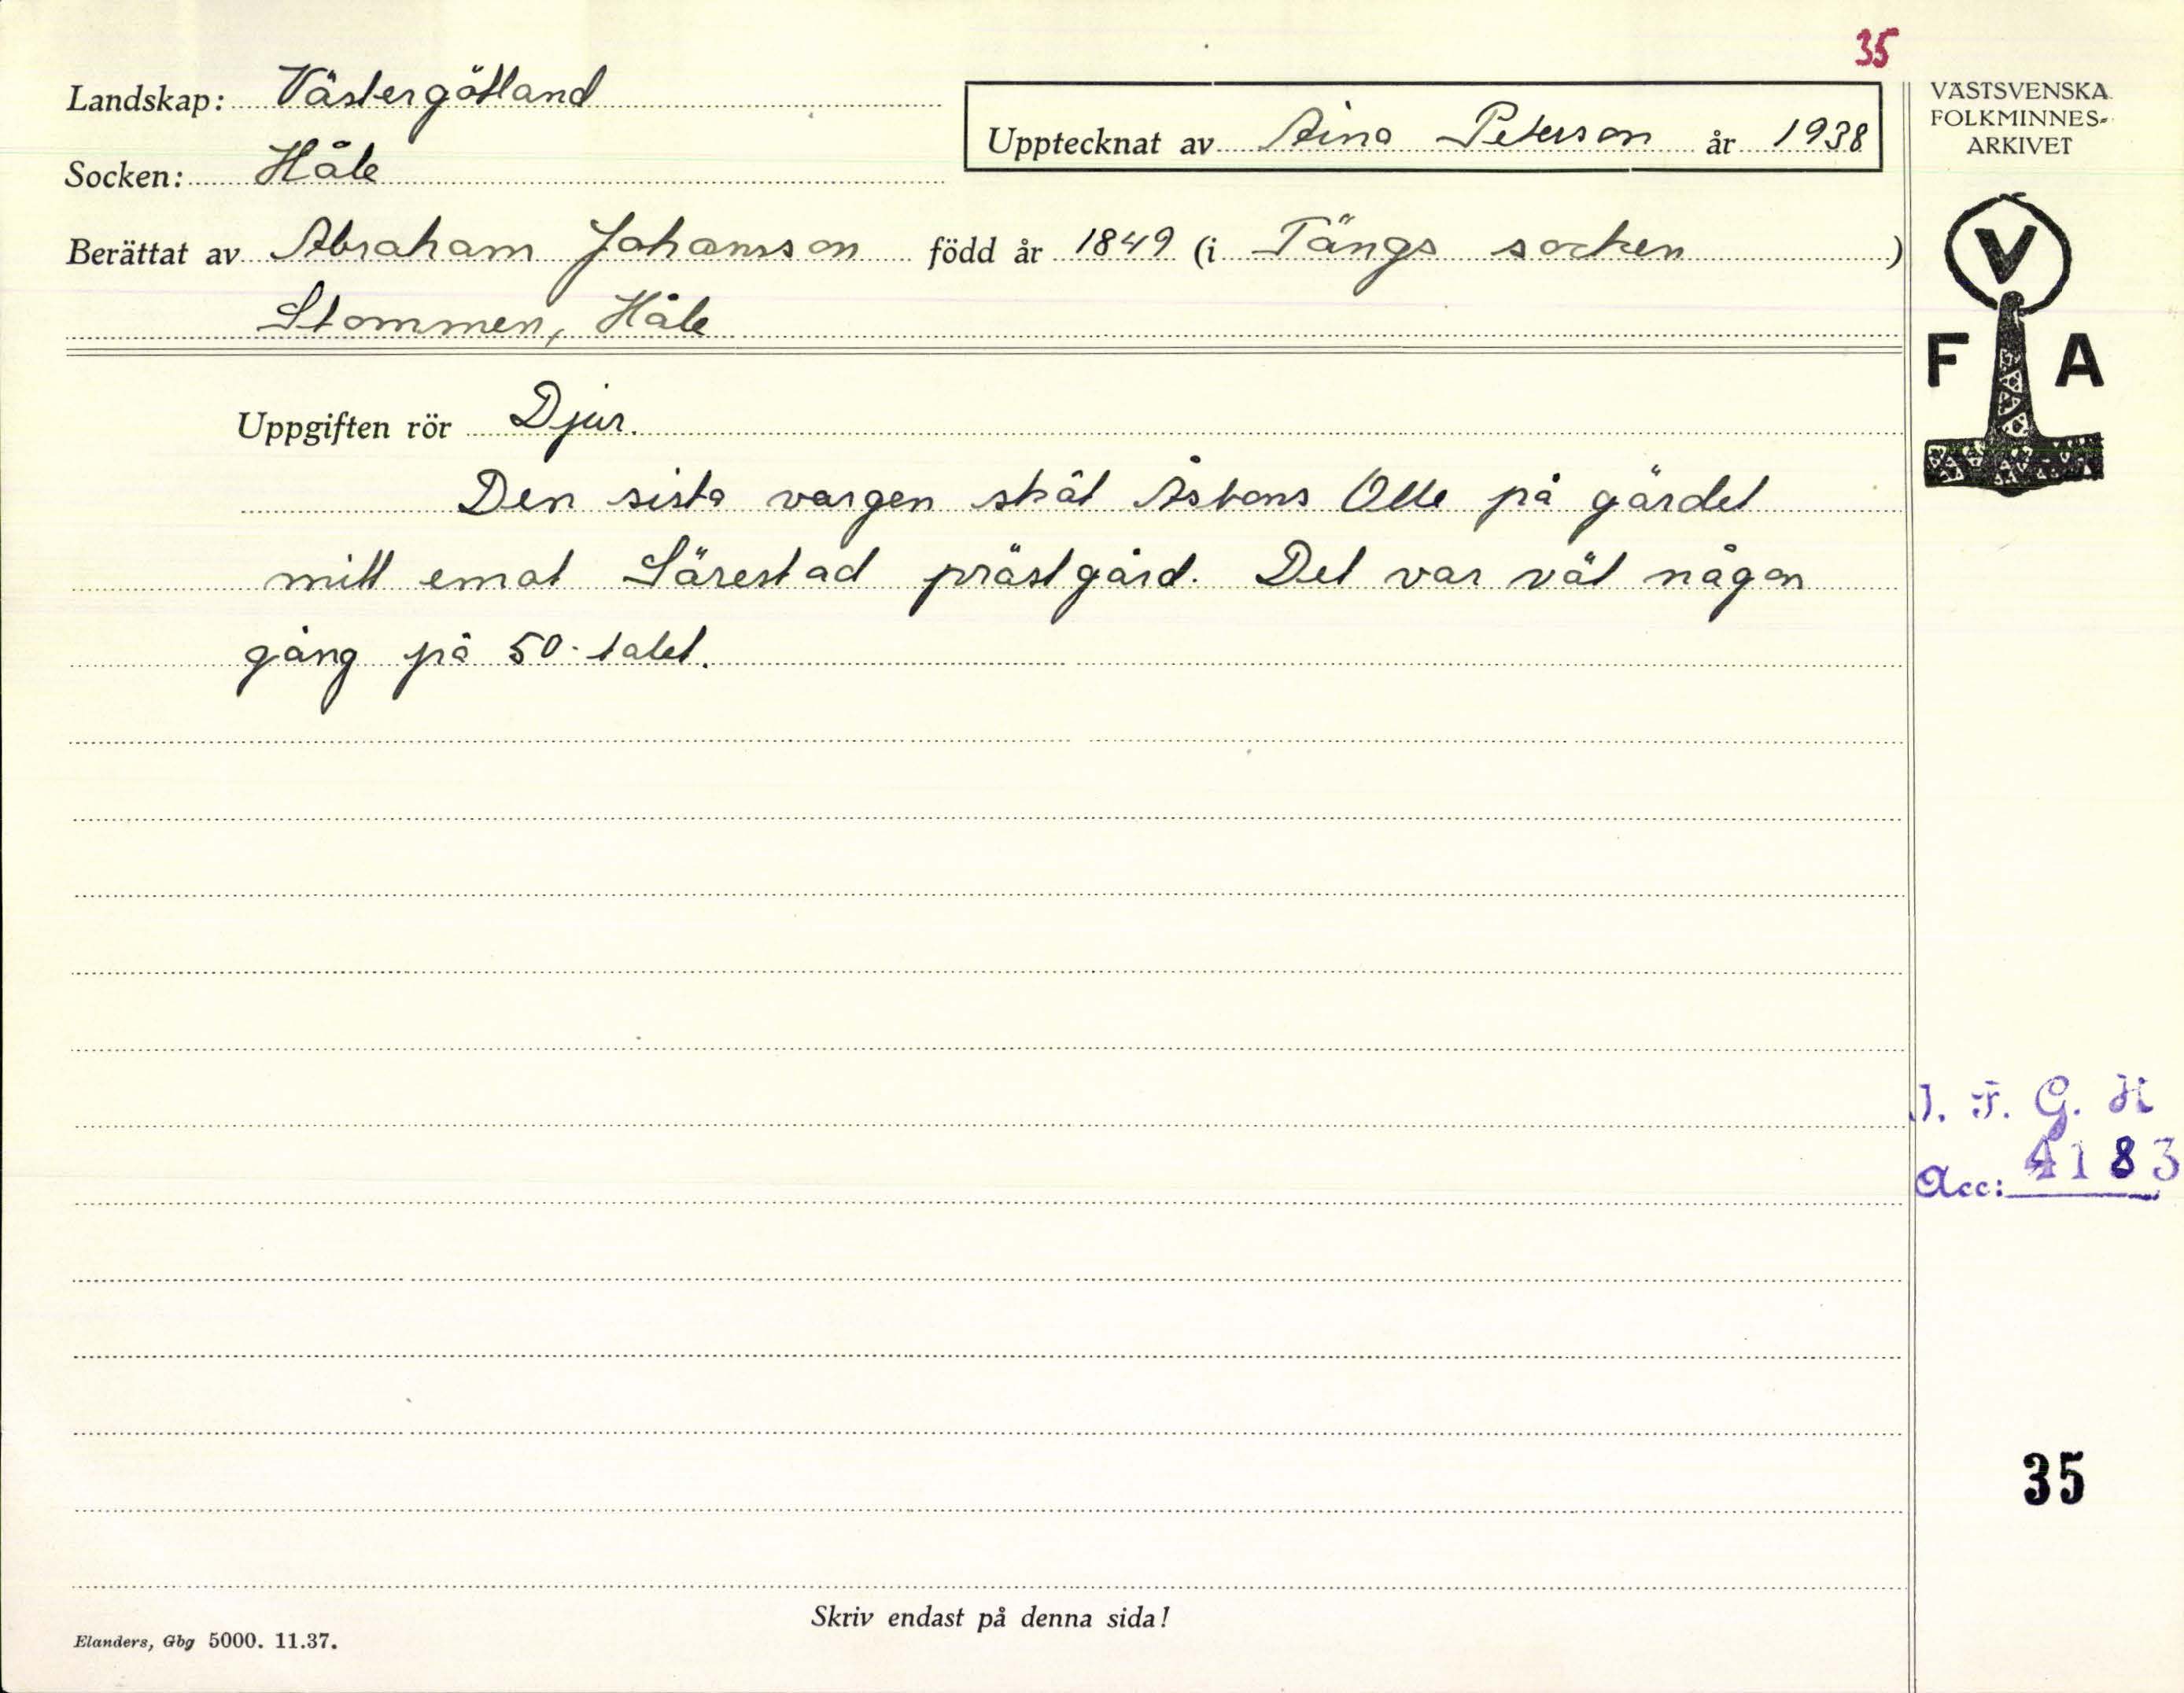 35
Landskap: Västergötland
Upptecknat av Aina Peterson år 1938
VÄSTSVENSKA
FOLKMINNES-
ARKIVET
Socken: Håle
Berättat av Abraham Johansson född år 1849 (i Tängs socken )
Stommen, Håle
V
F A
Uppgiften rör Djur.
Den sista vargen sköt Olle på gärdet
mitt emot Särestad prästgård. Det var väl någon
gång på 50-talet.
I. F. G. H
Acc: 4183
35
Skriv endast på denna sida!
Elanders, Gbg 5000. 11.37.